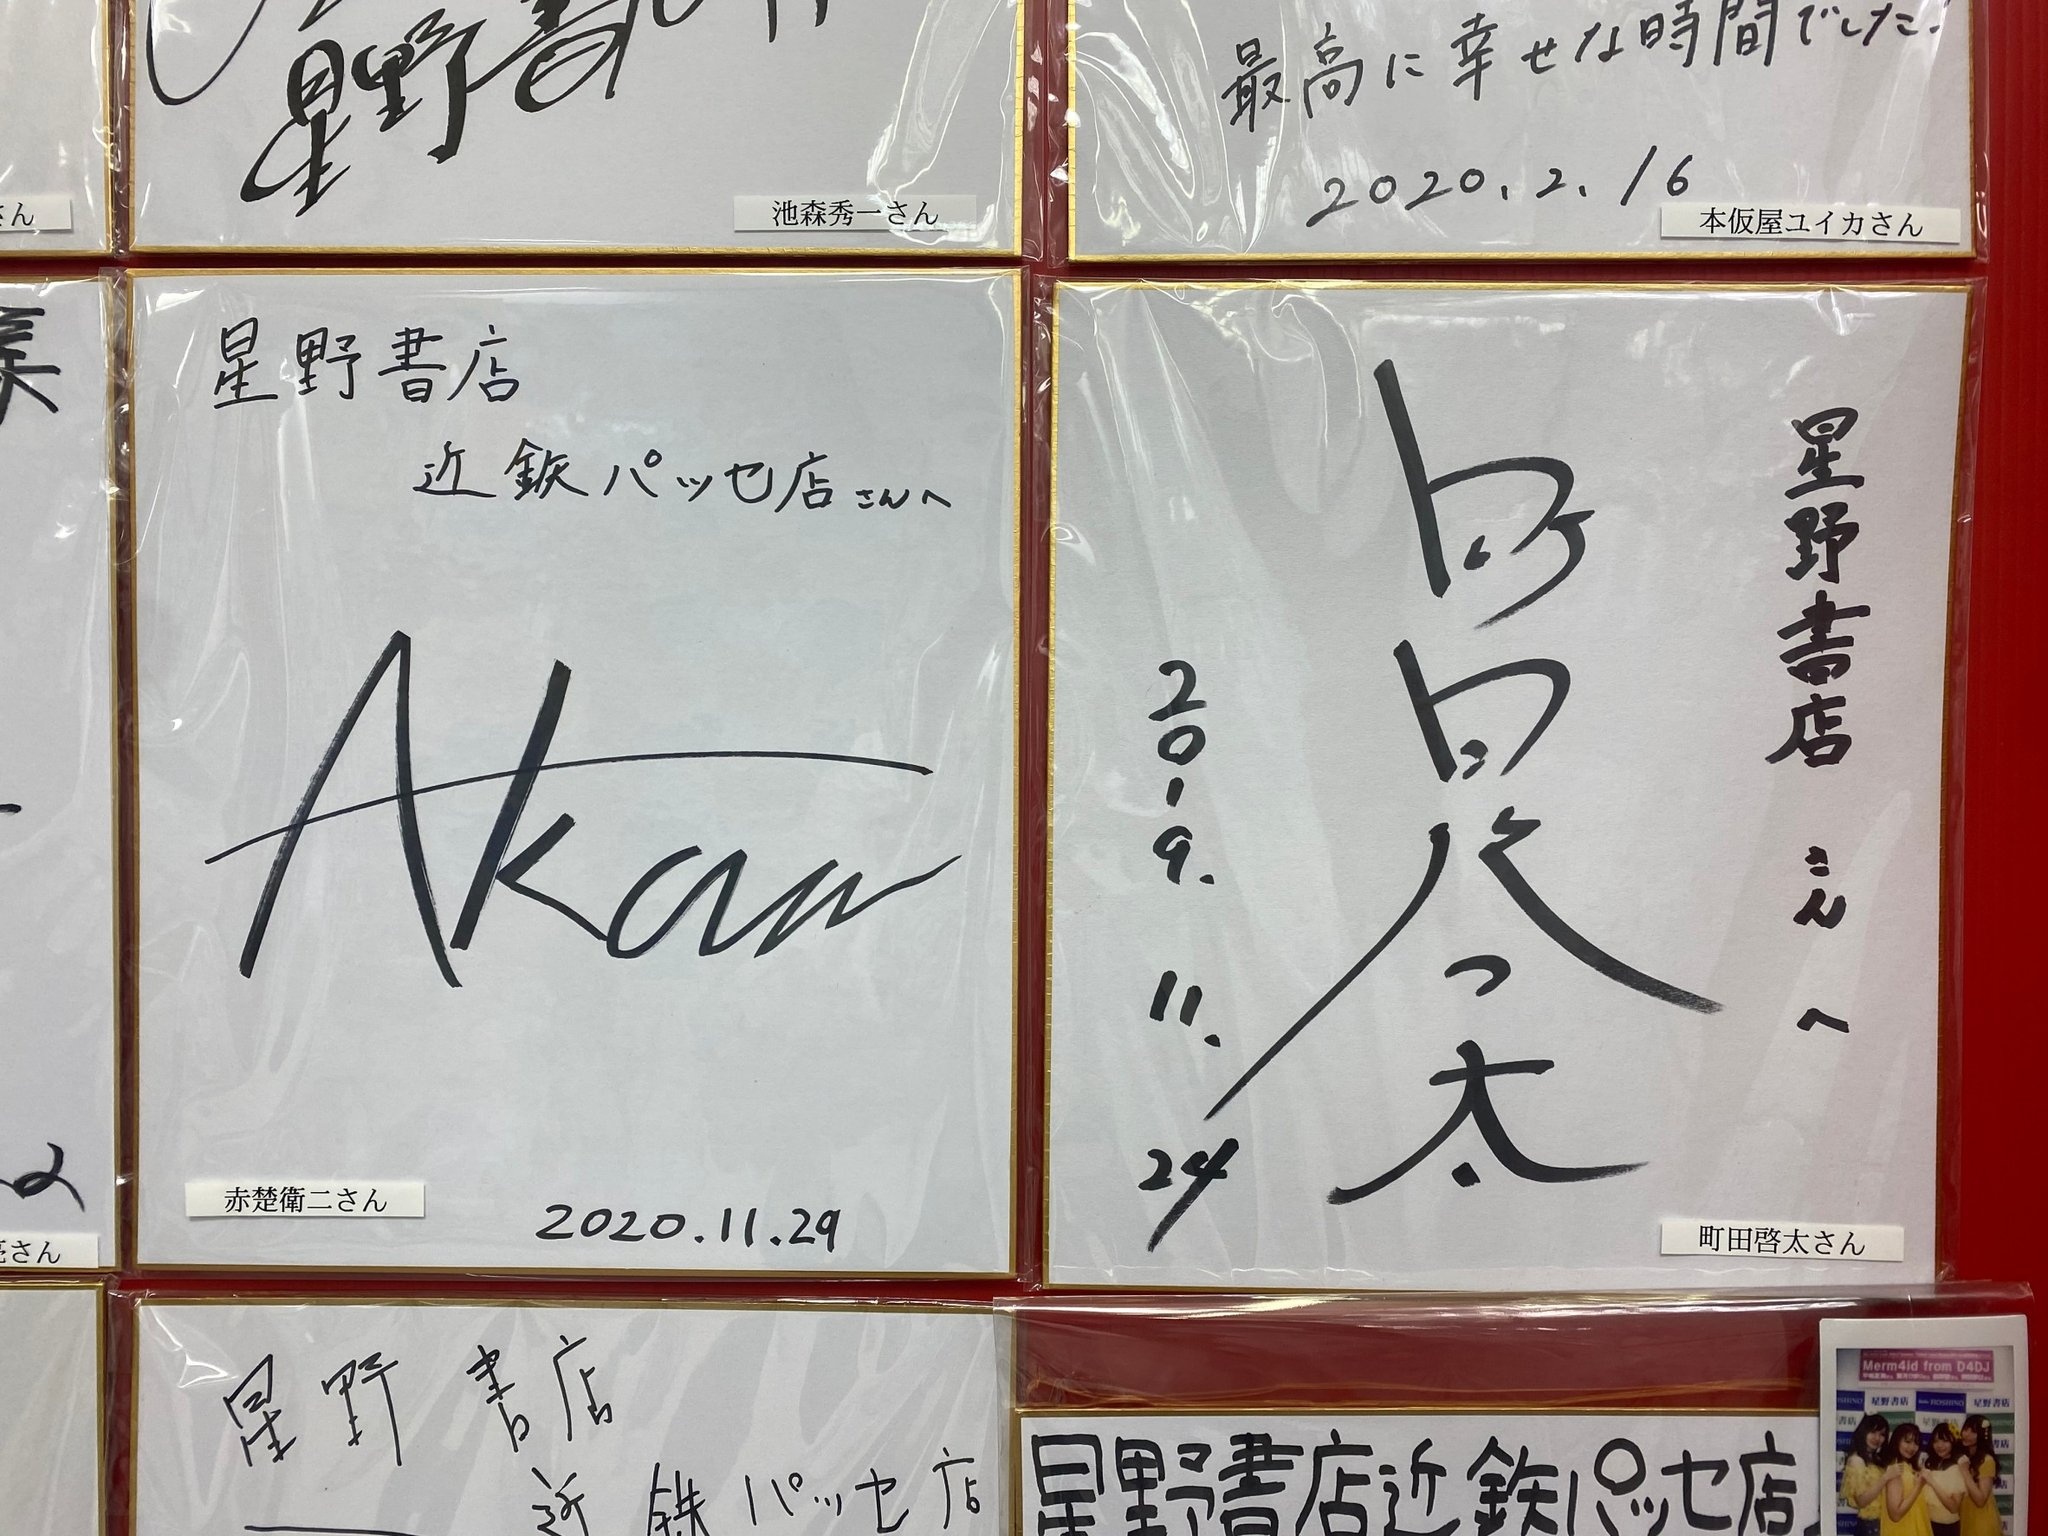 星野書
池森秀一さん
最高に幸せな時間でした!
2020.2.16
本仮屋ユイカさん
さん
星野書店
近鉄パッセ店さんへ
Akaso
赤楚衛二さん
2020.11.29
星野書店 さんへ
町田啓太
2019.11.24
町田啓太さん
さん
星野書店
近鉄パッセ店
星野書店近鉄パッセ店
Merm4id from D4DJ
HOSHINO
星野書店